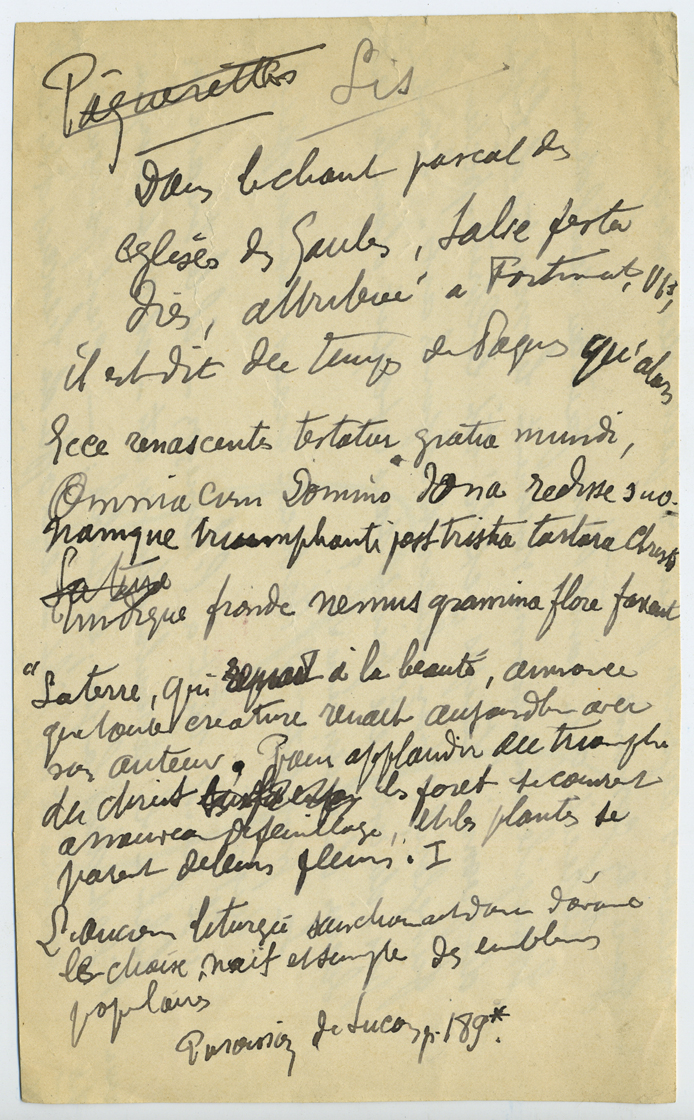 Pâquerettes Lis
Dans le chant pascal des
eglises des Gaules, Salve festa
dies, attribué a Fortunat, VIs,
il est dit du temps de Paques qu'alors
Ecce renascentis testatur gratia mundi,
Omnia cum Domino dona redisse suo.
namque triumphanti post tristia tartara Christo
undique fronde nemus gramina flore favent
"La terre, qui renait à la beauté, annonce
que toute creature renait aujourdhui avec
son auteur. Pour applaudir au triomphe
du christ les foret se couvrent
a nouveau de feuillage, et les plantes se
parent de leurs fleurs". I
L'ancien liturgie
le choix, naif et simple des emblemes
populaires
de Lucas p. 189*.